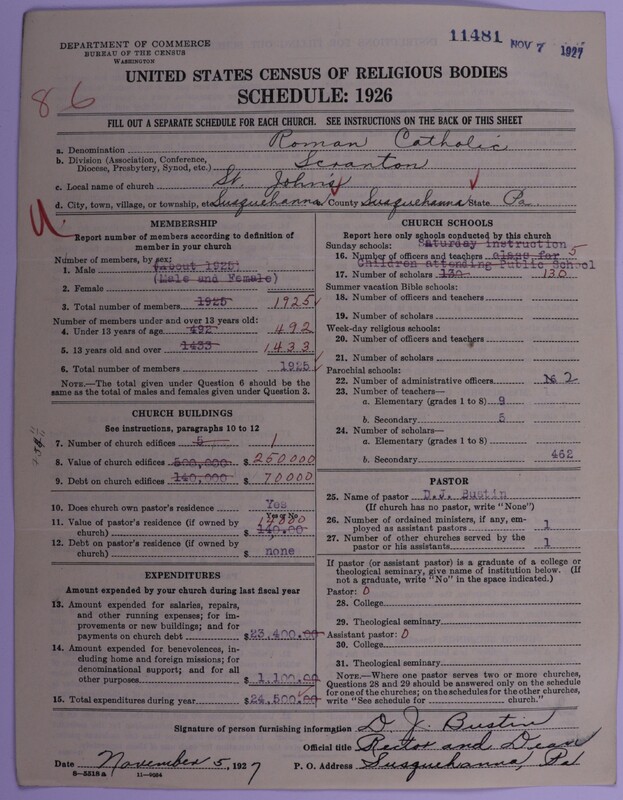 DEPARTMENT OF COMMERCE
BUREAU OF THE CENSUS
WASHINGTON
11481 NOV 7 1927
UNITED STATES CENSUS OF RELIGIOUS BODIES
SCHEDULE: 1926
86
FILL OUT A SEPARATE SCHEDULE FOR EACH CHURCH. SEE INSTRUCTIONS ON THE BACK OF THIS SHEET
a. Denomination Roman Catholic
b. Division (Association, Conference, Diocese, Presbytery, Synod, etc.) Scranton
c. Local name of church St. John's
d. City, town, village, or township, etc. Susquehanna County Susquehanna State Pa.
MEMBERSHIP
Report number of members according to definition of
member in your church
Number of members, by sex:
1. Male (about 1925)
2. Female (Male and Female)
3. Total number of members 1925 1925
Number of members under and over 13 years old:
4. Under 13 years of age 492 492
5. 13 years old and over 1433 1433
6. Total number of members 1925
NOTE.—The total given under Question 6 should be
same as the total of males and females given under Question 3.
CHURCH BUILDINGS
See instructions, paragraphs 10 to 12
7. Number of church edifices 5 1
8. Value of church edifices 500,000 $ 250000
9. Debt on church edifices 140,000 $ 70000
10. Does church own pastor's residence? Yes
Yes or No
11. Value of pastor's residence (if owned by
church) $ 140.00
12. Debt on pastor's residence (if owned by
church) $ none
EXPENDITURES
Amount expended by your church during last fiscal year
13. Amount expended for salaries, repairs,
and other running expenses; for im-
provements or new buildings; and for
payments on church debt $ 23,400.00
14. Amount expended for benevolences, in-
cluding home and foreign missions; for
denominational support; and for all
other purposes $ 1,100.00
15. Total expenditures during year $ 24,500.00
CHURCH SCHOOLS
Report here only schools conducted by this church
Sunday schools: Saturday instruction
16. Number of officers and teachers class for 5
Children attending Public School
17. Number of scholars 130 130
Summer vacation Bible schools:
18. Number of officers and teachers
19. Number of scholars
Week-day religious schools:
20. Number of officers and teachers
21. Number of scholars
Parochial schools:
22. Number of administrative officers 2
23. Number of teachers—
a. Elementary (grades 1 to 8) 9
b. Secondary 5
24. Number of scholars—
a. Elementary (grades 1 to 8)
b. Secondary 462
PASTOR
25. Name of pastor D.J. Bustin
(If church has no pastor, write "None")
26. Number of ordained ministers, if any, em-
ployed as assistant pastors 1
27. Number of other churches served by the
pastor or his assistants 1
If pastor (or assistant pastor) is a graduate of a college or
theological seminary, give name of institution below. (If
not a graduate, write "No" in the space indicated.)
Pastor: 0
28. College
29. Theological seminary
Assistant pastor: 0
30. College
31. Theological seminary
NOTE.—Where one pastor serves two or more churches,
Questions 28 and 29 should be answered only on the schedule
for one of the churches; on the schedules for the other churches,
write "See schedule for church."
Signature of person furnishing information D. J. Bustin
Official title Rector and Dean
Date November 5, 1927 P. O. Address Susquehanna, Pa
8—5518 a 11—9034